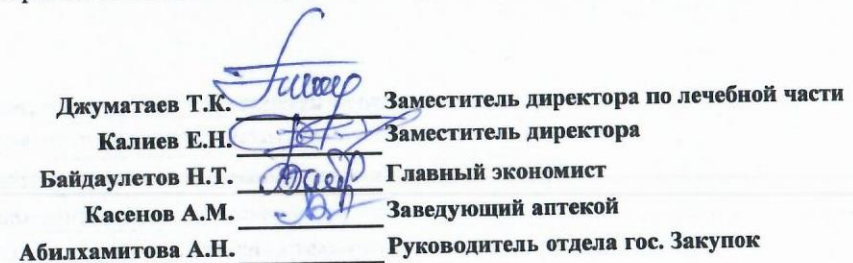 Джуматаев Т.К. Заместитель директора по лечебной части
Калиев Е.Н. Заместитель директора
Байдаулетов Н.Т. Главный экономист
Касенов А.М. Заведующий аптекой
Абилхамитова А.Н. Руководитель отдела гос. Закупок